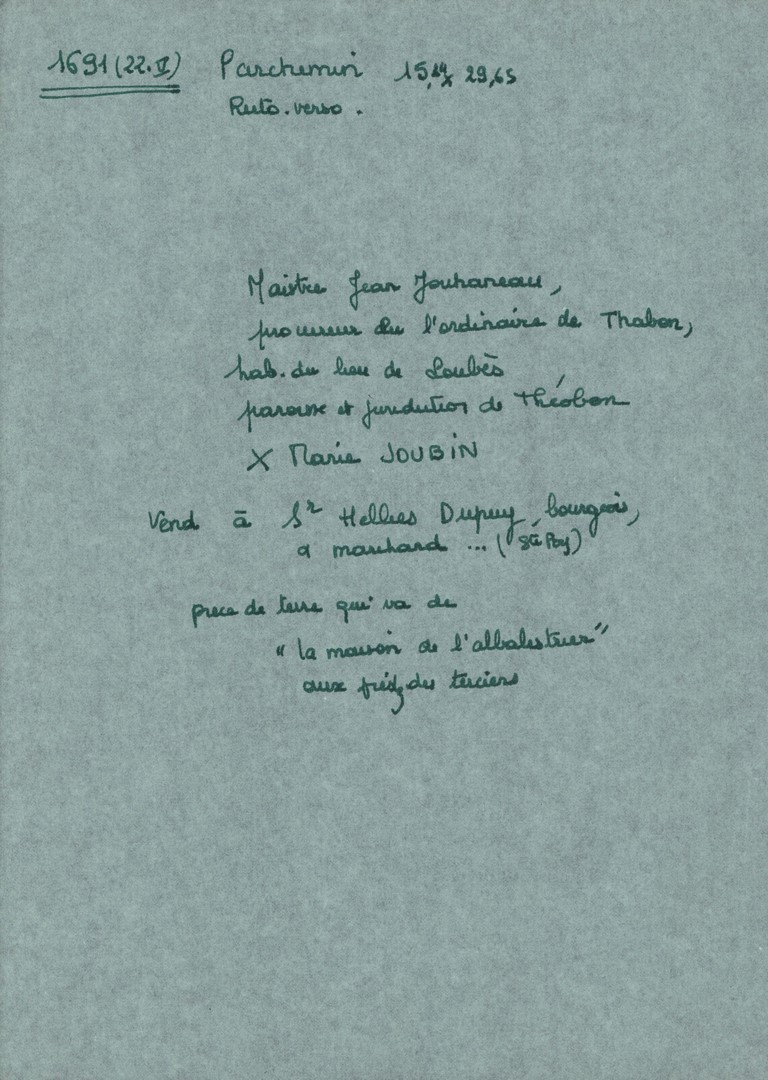 1691 (22.V) Parchemin 15,24 x 29,65
Recto.verso.
Maistre Jean Jouhaneau,
procureur de l'ordinaire de Thabon,
hab. du lieu de Loubès
paroisse et juridiction de Théobon
X Marie JOUBIN
Vend à Sr Hellies Dupuy, bourgeois,
a marchand ... (Ste Foy)
piece de terre qui va de
"la maison de l'albalestrier"
aux des terciers